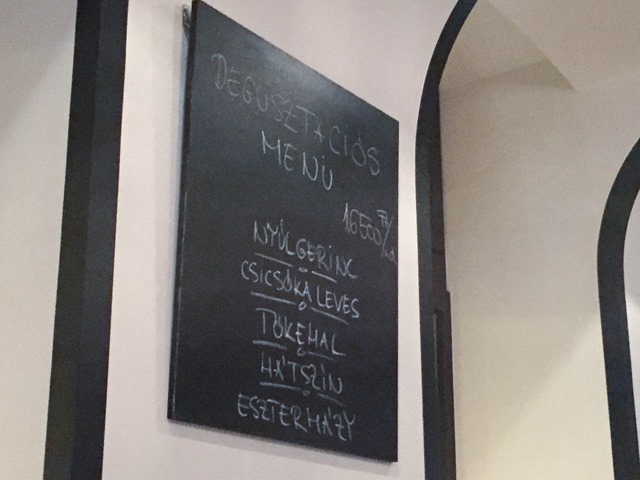 DEGUSZTACIÓS
MENÜ
16500
NYÚLGERINC
CSICSÓKA LEVES
TŐKEHAL
HÁTSZÍN
ESZTERHÁZY